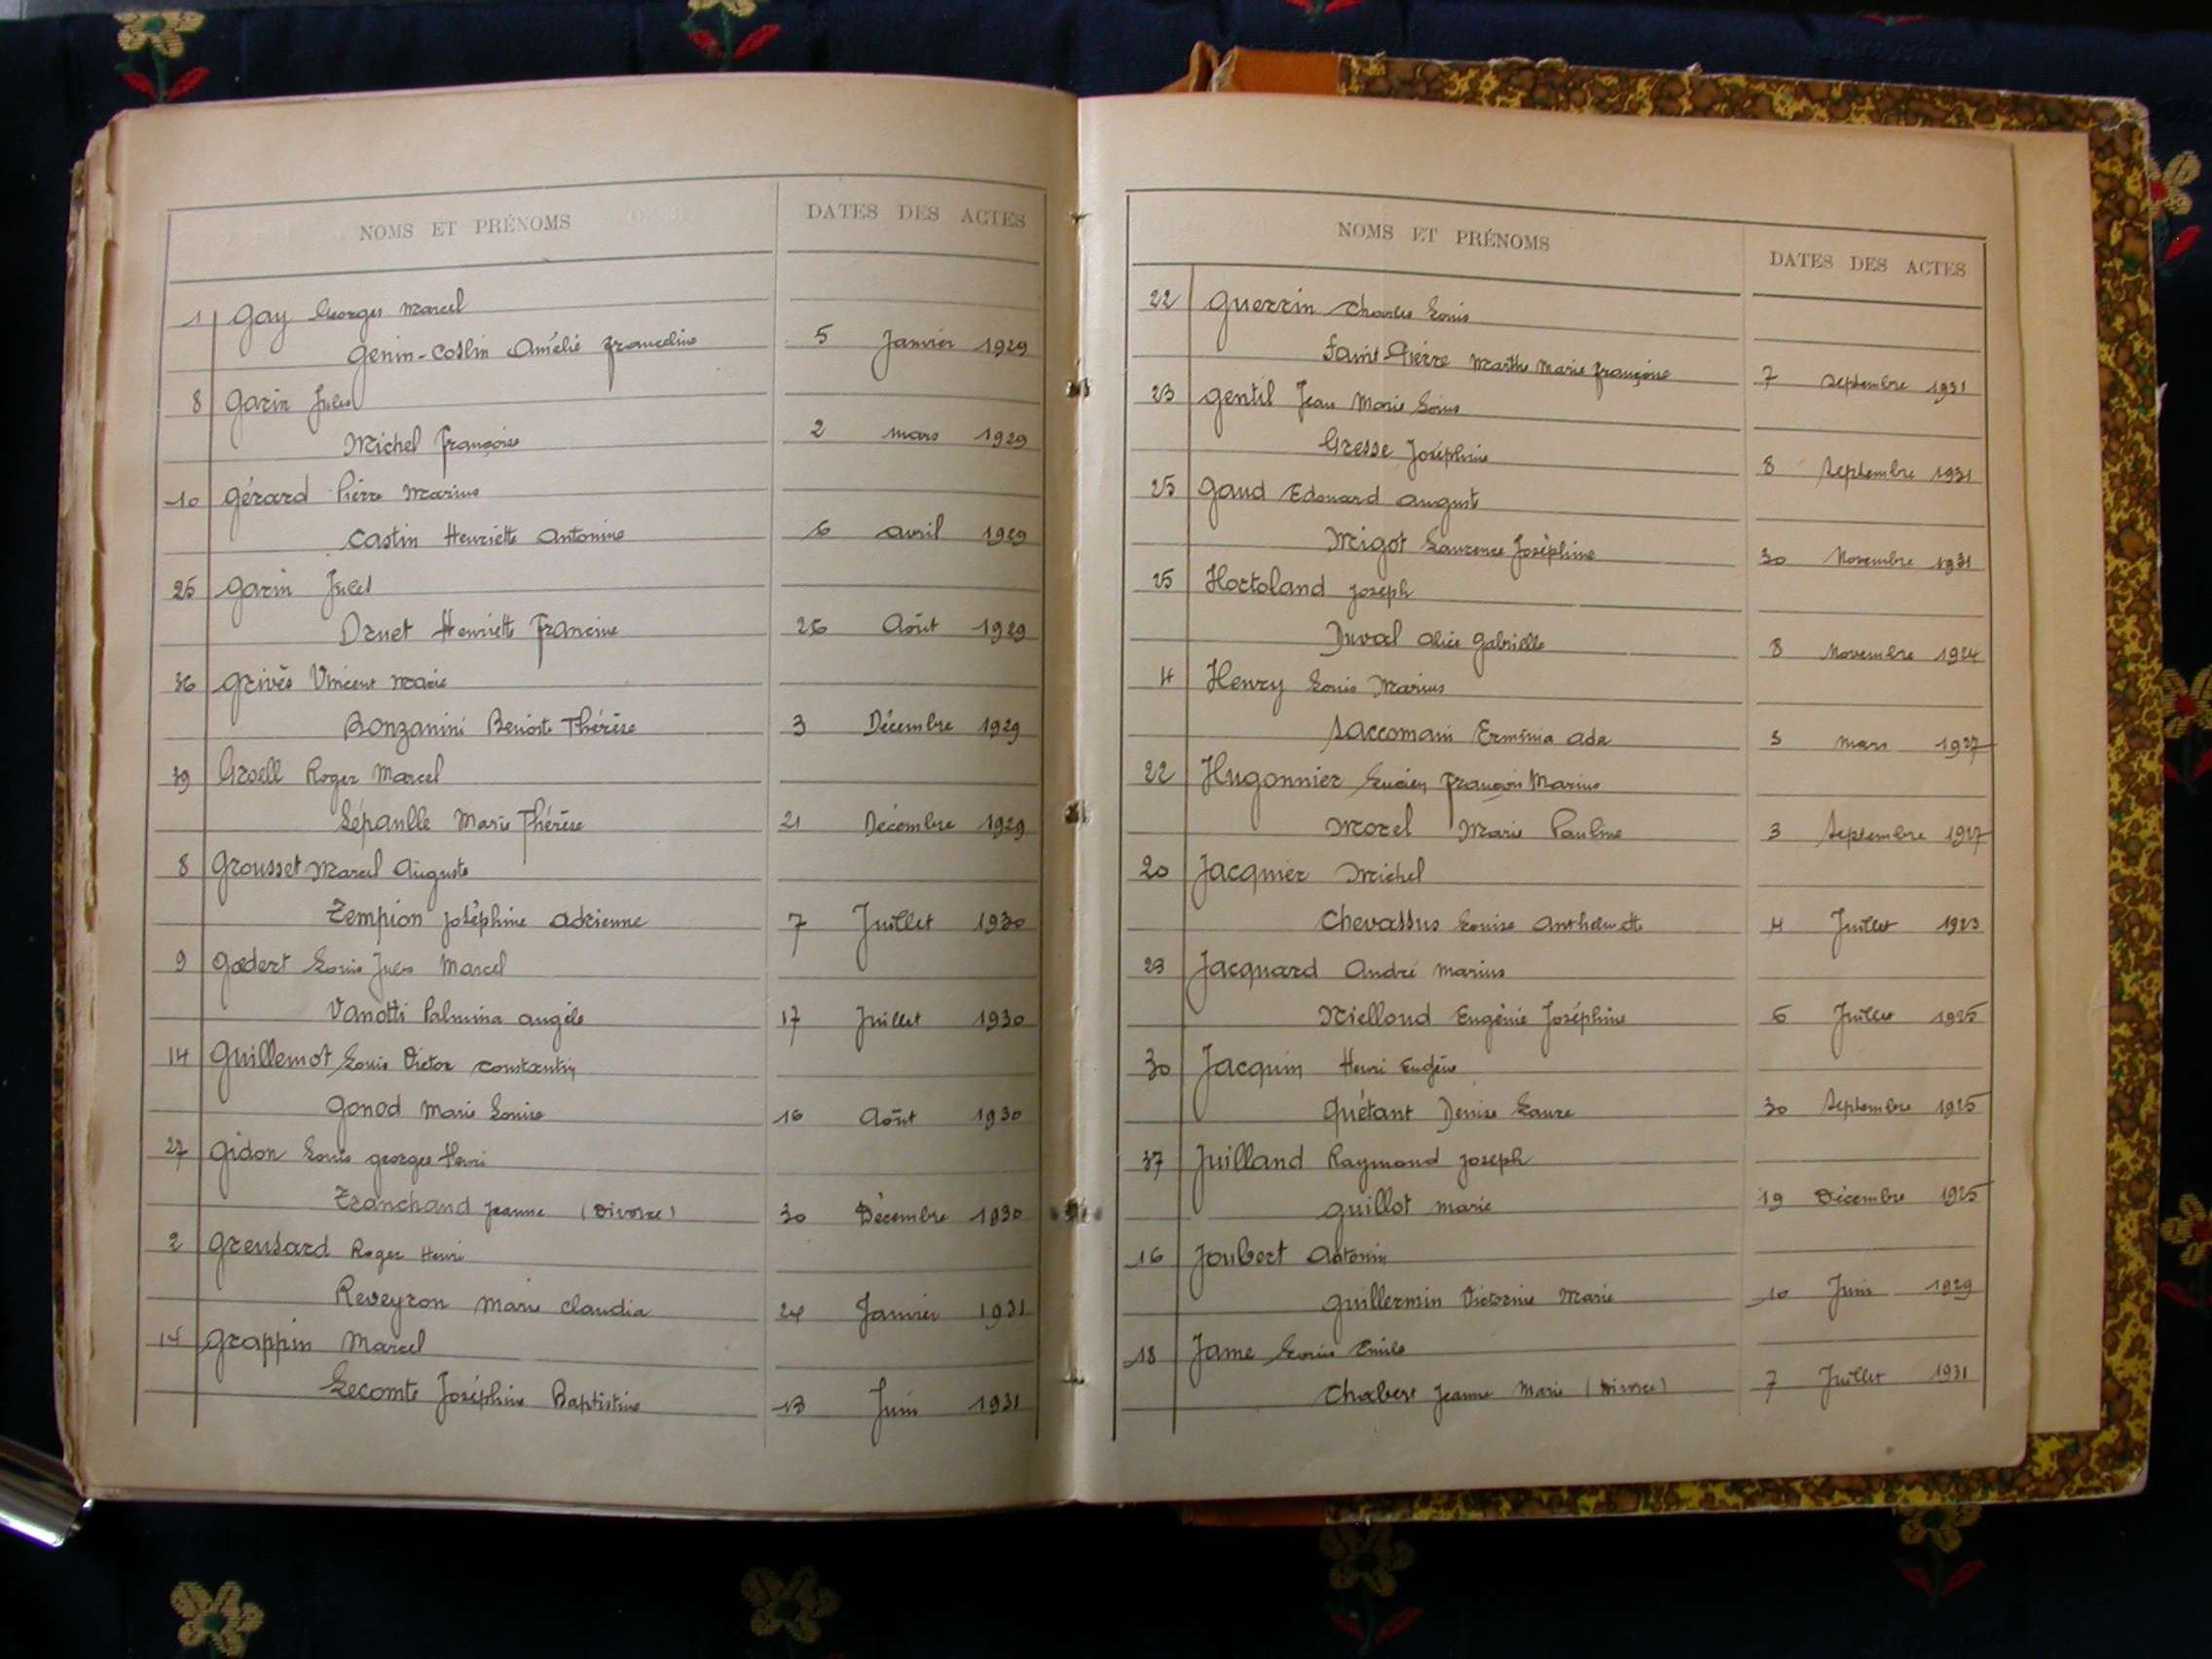 NOMS ET PRÉNOMS DATES DES ACTES
1 Gay Georges Marcel
Genin-Coslin Amélie Franceline 5 Janvier 1929
8 Garin Jules
Michel Françoise 2 mars 1929
10 Gérard Pierre Marius
Castin Henriette Antonine 6 avril 1929
25 Garin Jules
Druet Henriette Francine 26 Août 1929
36 Grivès Vincent Marie
Bonzanini Benoite Thérèse 3 Décembre 1929
39 Groell Roger Marcel
Lépaulle Marie Thérèse 21 Décembre 1929
8 Grousset Marcel Auguste
Tempion Joséphine Adrienne 7 Juillet 1930
9 Goedert Louis Jules Marcel
Vanotti Palmina Angèle 17 Juillet 1930
14 Guillemot Louis Victor Constantin
Gonod Marie Louise 16 Août 1930
27 Gidon Louis Georges Henri
Tranchand Jeanne (Divorce) 30 Décembre 1930
2 Grensard Roger Henri
Reveyron Marie Claudia 24 Janvier 1931
14 Grappin Marcel
Lecomte Joséphine Baptistine 13 Juin 1931
NOMS ET PRÉNOMS DATES DES ACTES
22 Guerrin Charles Louis
Saint-Pierre Marthe Marie Françoise 7 Septembre 1931
23 Gentil Jean Marie Louis
Gresse Joséphine 8 Septembre 1931
25 Gaud Edouard August
Migot Laurence Joséphine 30 Novembre 1931
25 Hoctoland Joseph
Duval Alice Gabrielle 8 Novembre 1924
4 Henry Louis Marius
Saccomani Erminia Ada 3 mars 1927
22 Hugonnier Lucien François Marius
Morel Marie Pauline 3 Septembre 1927
20 Jacquier Michel
Chevassus Louise Anthelmette 4 Juillet 1923
23 Jacquard André Marius
Nielloud Eugénie Joséphine 6 Juillet 1925
30 Jacquin Henri Eugène
Quétant Denise Laure 30 Septembre 1925
37 Juilland Raymond Joseph
Guillot Marie 19 Décembre 1925
16 Joubert Antonin
Guillermin Victorine Marie 10 Juin 1929
18 Jame Louis Emile
Chabert Jeanne Marie (Divorce) 7 Juillet 1931